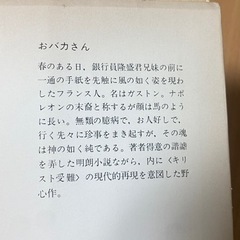 おバカさん
春のある日，銀行員隆盛君兄妹の前に
一通の手紙を先触に風の如く姿を現わ
したフランス人。名はガストン。ナポ
レオンの末裔と称するが顔は馬のよう
に長い。無類の臆病で，お人好しで，
行く先々に珍事をまき起すが，その魂
は神の如く純である。著者得意の諧謔
を弄した明朗小説ながら，内に〈キリ
スト受難〉の現代的再現を意図した野
心作。